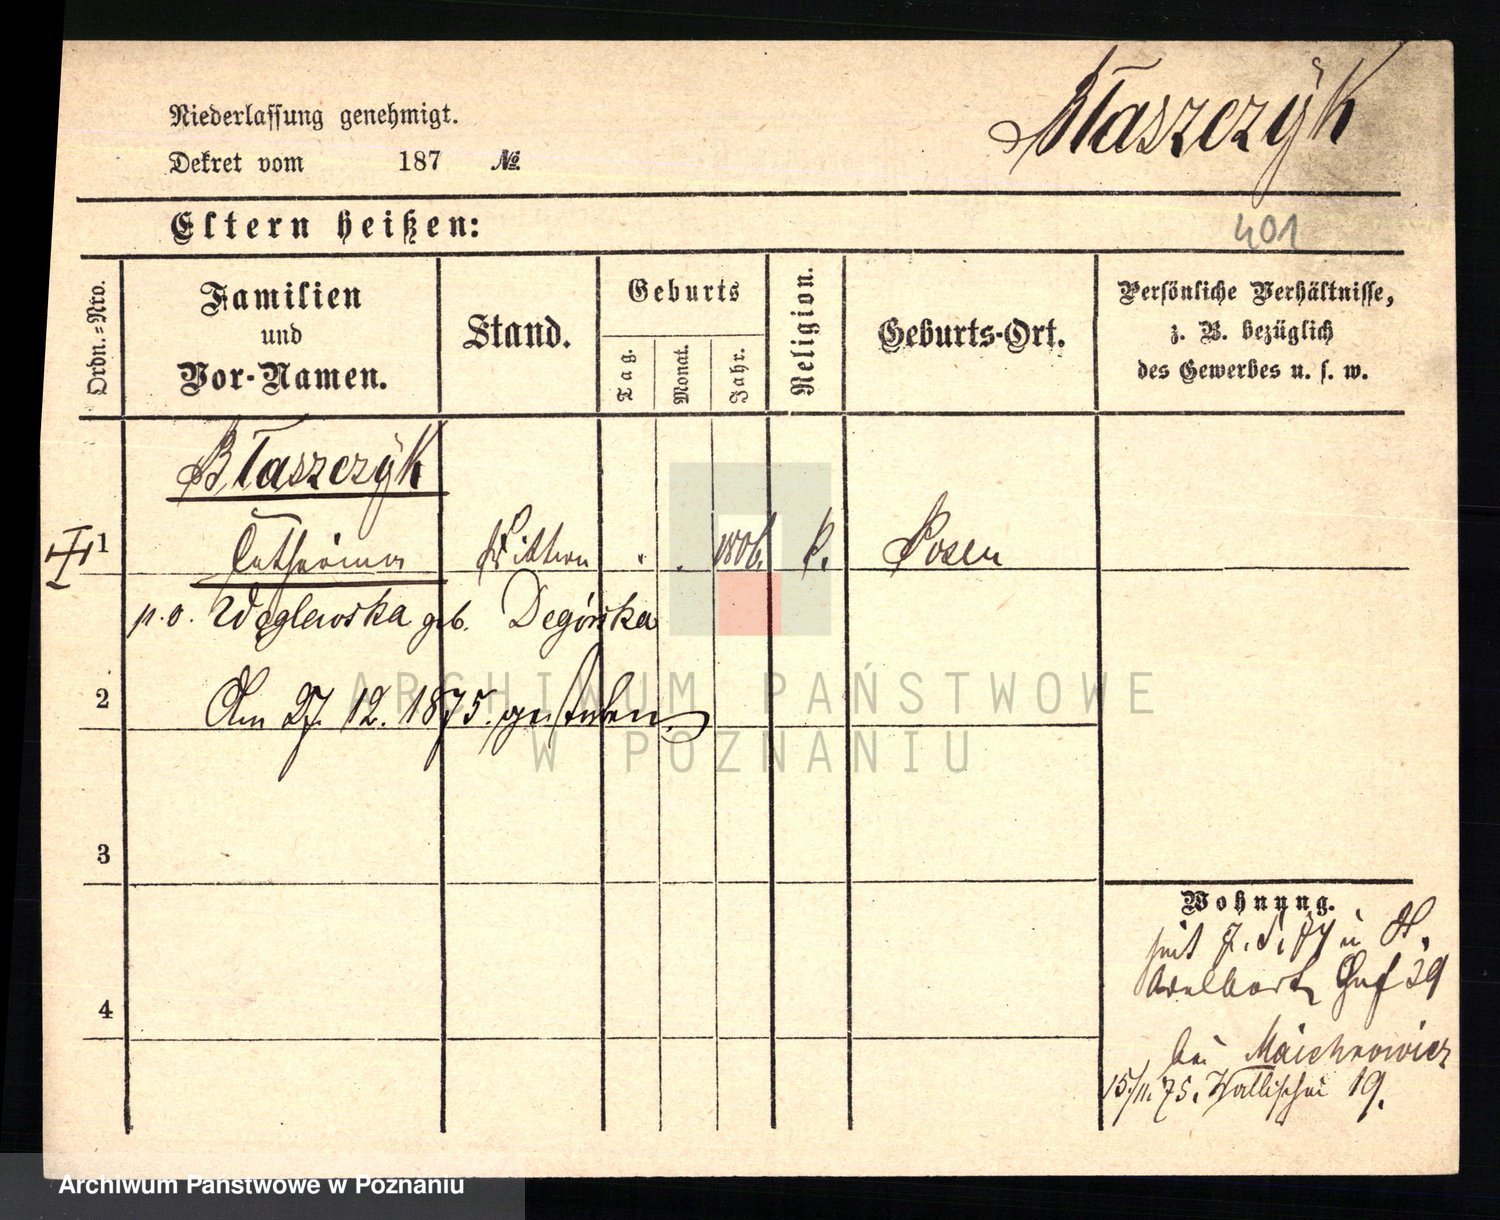 Błaszczÿk
Niederlassung genehmigt.
Dekret vom 187 №
Eltern heißen:
401
Ordn.=Nro.
Familien
und
Vor-Namen.
Stand.
Geburts
Tag.
Monat.
Jahr.
Religion.
Geburts-Ort.
Persönliche Verhältnisse,
z. B. bezüglich
des Gewerbes u. s. w.
Błaszczÿk
1 Catharina Wittwe 1806. k. Posen
p. o. Węglewska geb. Degórska
2 Am 27. 12. 1875. gestorben
3
4
Wohnung.
seit 7. 5. 74
Adalbert 39
bei Maichrowicz
15/11. 75. Wallischei 19.
ARCHIWUM PAŃSTWOWE
W POZNANIU
Archiwum Państwowe w Poznaniu